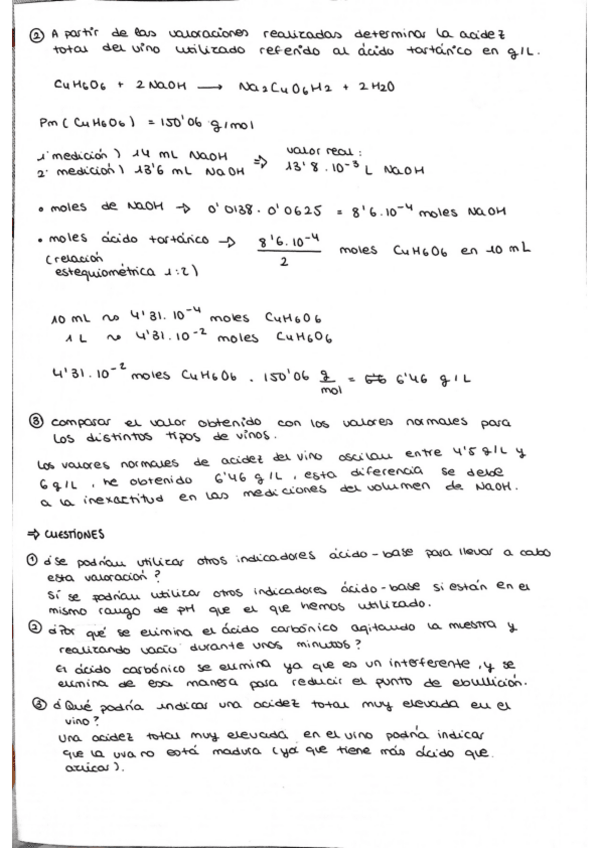 ② A partir de las valoraciones realizadas determinar la acidez
total del vino utilizado referido al ácido tartárico en g/L.
C4H6O6 + 2 NaOH → Na2C4O6H2 + 2 H2O
Pm (C4H6O6) = 150'06 g/mol
1ª medición) 14 mL NaOH ⇒ valor real:
2ª medición) 13'6 mL NaOH 13'8 · 10⁻³ L NaOH
• moles de NaOH → 0'0138 · 0'0625 = 8'6 · 10⁻⁴ moles NaOH
• moles ácido tartárico → 8'6 · 10⁻⁴ / 2 moles C4H6O6 en 10 mL
(relación
estequiométrica 1:2)
10 mL ~ 4'31 · 10⁻⁴ moles C4H6O6
1 L ~ 4'31 · 10⁻² moles C4H6O6
4'31 · 10⁻² moles C4H6O6 · 150'06 g/mol = 6'46 g/L
③ Comparar el valor obtenido con los valores normales para
los distintos tipos de vinos.
Los valores normales de acidez del vino oscilan entre 4'5 g/L y
6 g/L, he obtenido 6'46 g/L, esta diferencia se debe
a la inexactitud en las mediciones del volumen de NaOH.
⇒ CUESTIONES
① ¿Se podrían utilizar otros indicadores ácido-base para llevar a cabo
esta valoración?
Sí se podrían utilizar otros indicadores ácido-base si están en el
mismo rango de pH que el que hemos utilizado.
② ¿Por qué se elimina el ácido carbónico agitando la muestra y
realizando vacío durante unos minutos?
El ácido carbónico se elimina ya que es un interferente, y se
elimina de esa manera para reducir el punto de ebullición.
③ ¿Qué podría indicar una acidez total muy elevada en el
vino?
Una acidez total muy elevada en el vino podría indicar
que la uva no está madura (ya que tiene más ácido que
azúcar).